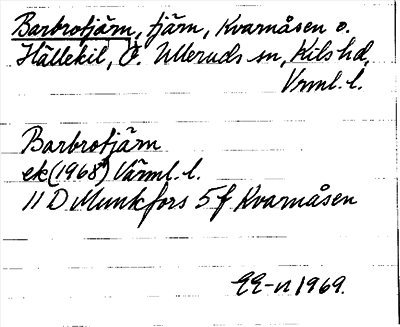 Barbrotjärn, tjärn, Kvarnåsen o.
Hällekil, Ö. Ulleruds sn, Kils hd,
Vrml. l.
Barbrotjärn
ek (1968) Värml. l.
11 D Munkfors 5 f Kvarnåsen
1969.